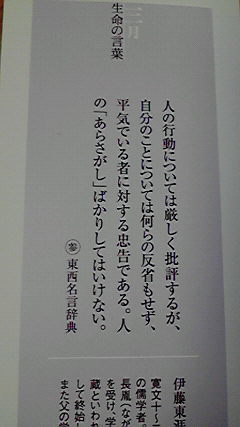 三月
生命の言葉
人の行動については厳しく批評するが、
自分のことについては何らの反省もせず、
平気でいる者に対する忠告である。人
の「あらさがし」ばかりしてはいけない。
参 東西名言辞典
伊藤東涯
寛文十～
の儒学者。
長胤（なが
を受け、学
蔵といわれ
して終始し
また父の学